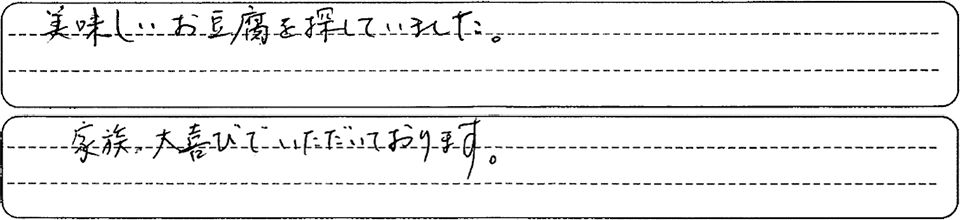 美味しいお豆腐を探していました。
家族、大喜びでいただいております。